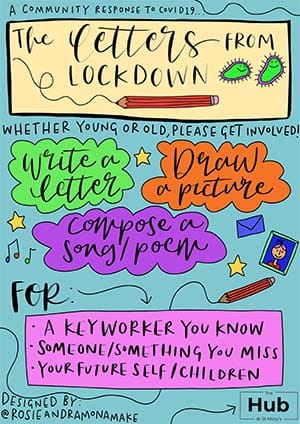 A COMMUNITY RESPONSE TO COVID19..
THE letters FROM
LOCKDOWN
WHETHER YOUNG OR OLD, PLEASE GET INVOLVED!
Write a
letter
Draw
a picture
Compose a
song/poem
FOR:
· A KEYWORKER YOU KNOW
· SOMEONE/SOMETHING YOU MISS
· YOUR FUTURE SELF/CHILDREN
DESIGNED BY:
@ROSIEANDRAMONAMAKE
The
Hub
at St Mary's